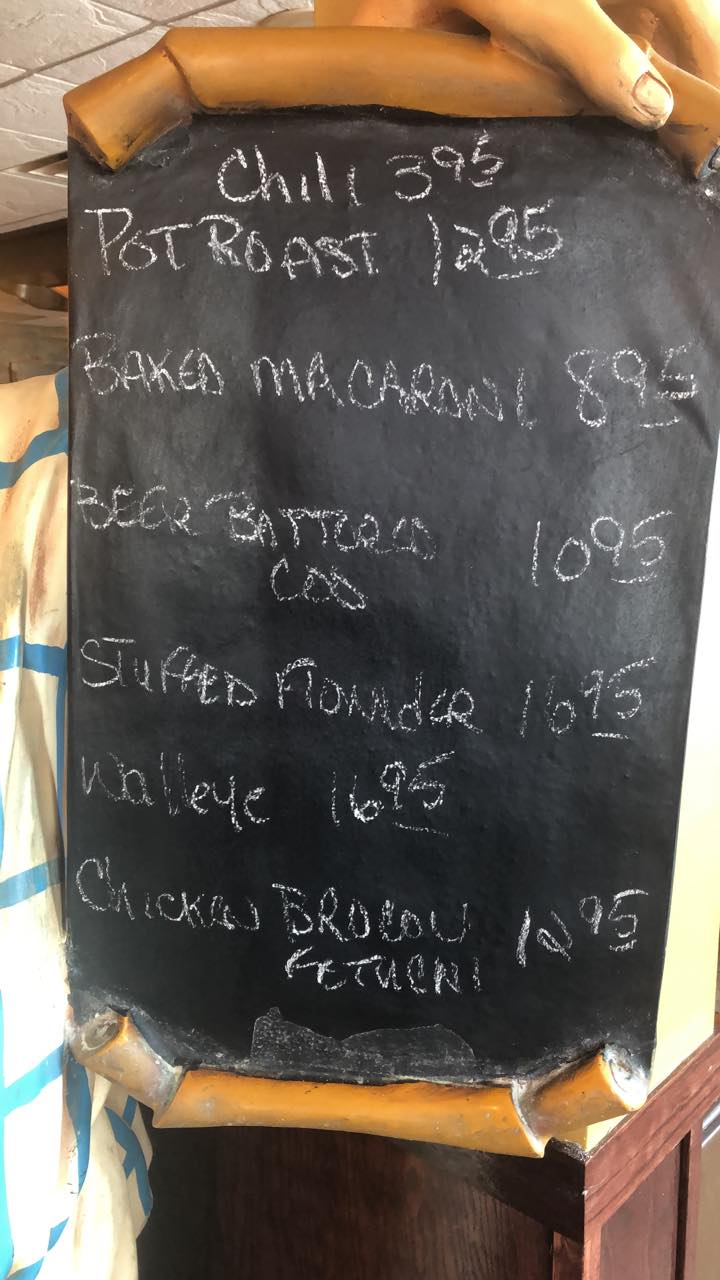 Chili 3 95
POT ROAST 12 95
BAKED MACARONI 8 95
BEER BATTERED 10 95
COD
STUFFED Flounder 16 95
Walleye 16 95
Chicken BROCOLI 12 95
FETUCNI